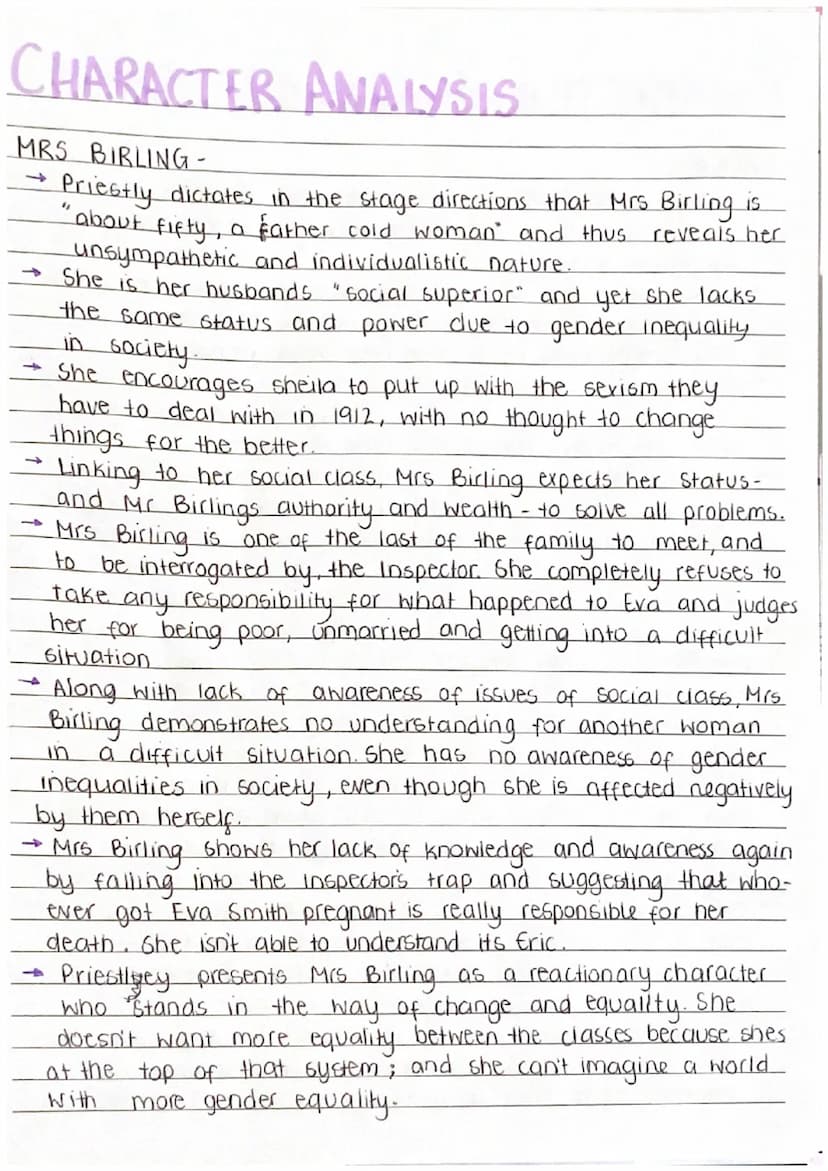 CHARACTER ANALYSIS
MRS BIRLING -
→ Priestly dictates in the stage directions that Mrs Birling is
"about fifty, a rather cold woman" and thus reveals her
unsympathetic and individualistic nature.
→ She is her husbands "social superior" and yet she lacks
the same status and power due to gender inequality
in society.
→ She encourages sheila to put up with the sexism they
have to deal with in 1912, with no thought to change
things for the better.
→ Linking to her social class, Mrs Birling expects her status-
and Mr Birlings authority and wealth - to solve all problems.
→ Mrs Birling is one of the last of the family to meet, and
to be interrogated by, the Inspector. She completely refuses to
take any responsibility for what happened to Eva and judges
her for being poor, unmarried and getting into a difficult
situation
→ Along with lack of awareness of issues of social class, Mrs
Birling demonstrates no understanding for another woman
in a difficult situation. She has no awareness of gender
inequalities in society, even though she is affected negatively
by them herself.
→ Mrs Birling shows her lack of knowledge and awareness again
by falling into the inspector's trap and suggesting that who-
ever got Eva Smith pregnant is really responsible for her
death. She isn't able to understand its Eric.
→ Priestley presents Mrs Birling as a reactionary character
who stands in the way of change and equality. She
doesn't want more equality between the classes because shes
at the top of that system; and she can't imagine a world
with more gender equality.